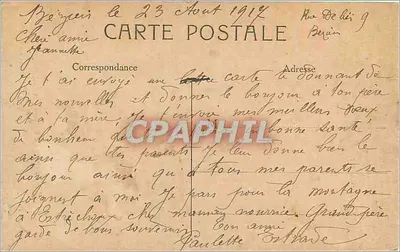 Bezier le 23 Aout 1917
Rue De 9
Chere amie
Jeannette
CARTE POSTALE
Correspondance
Adresse
Je t'ai envoyé une carte te donnant de
mes nouvelles et donner le bonjour a ton père
et à ta mère Je t'envoie mes meilleurs vœux
de bonheur bonne santé
CPAPHIL
ainsi que tes parents Je leur donne bien le
bonjour ainsi qu'à tous mes parents se
joignent à moi Je pars pour la montagne
à chez maman nourrice. Grand père
garde de bons souvenirs Ton amie
Paulette